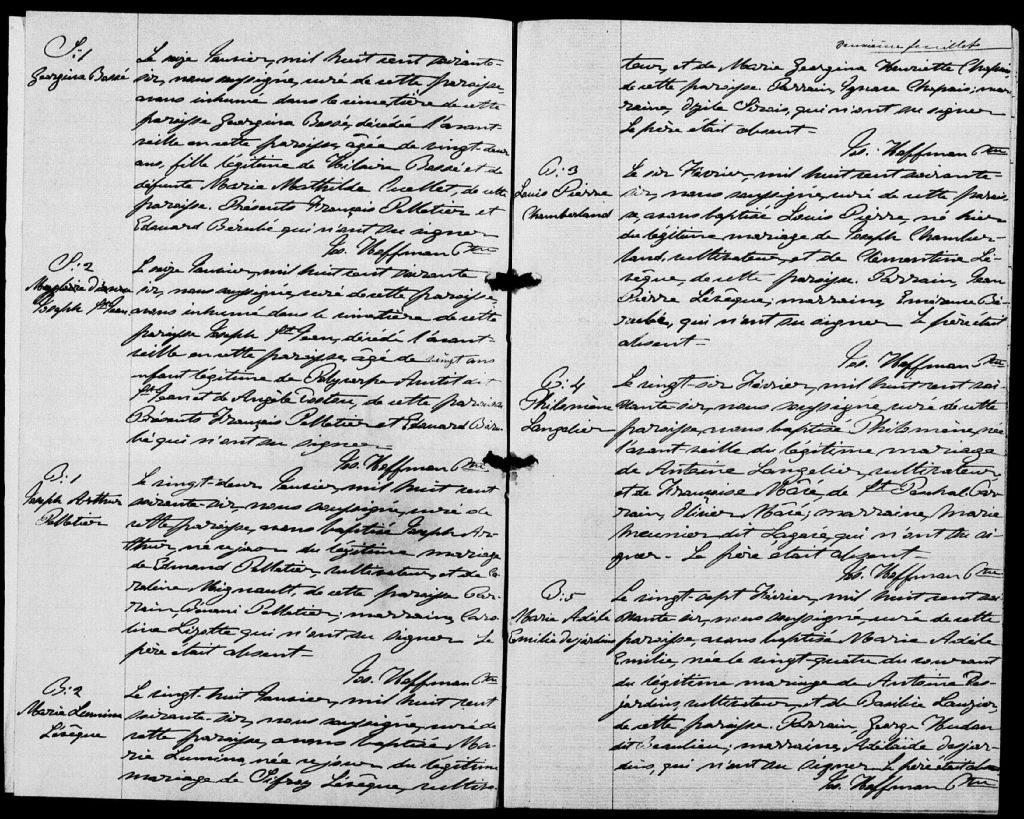 S:1
Georgina Bossé
Le seize Janvier, mil huit cent soixante-
six, nous soussigné, curé de cette paroisse,
avons inhumé dans le cimetière de cette
paroisse Georgina Bossé, décédée l'avant-
veille en cette paroisse, âgée de vingt-deux
ans, fille légitime de Hilaire Bossé et de
défunte Marie Mathilde Ouellet, de cette
paroisse. Présents François Pelletier et
Edouard Bérubé qui n'ont su signer
Jos. Hoffman Ptre
S:2
Joseph St Jean
Le seize Janvier, mil huit cent soixante
six, nous soussigné, curé de cette paroisse,
avons inhumé dans le cimetière de cette
paroisse Joseph St Jean, décédé l'avant-
veille en cette paroisse, âgé de vingt ans
enfant légitime de Polycarpe Autil dit
St Jean et de Angèle, de cette paroisse
Présents François Pelletier et Edouard Béru
bé qui n'ont su signer.
Jos. Hoffman Ptre
B:1
Joseph Arthur
Pelletier
Le vingt-deux Janvier, mil huit cent
soixante-six, nous soussigné, curé de
cette paroisse, avons baptisé Joseph Ar-
thur, né ce jour du légitime mariage
de Edmond Pelletier, cultivateur, et de Ca
roline Mignault, de cette paroisse Par-
rain, Pelletier; marraine, Caro-
line Lizotte qui n'ont su signer Le
père était absent-
Jos. Hoffman Ptre
B:2
Marie Lumina
Lévêque
Le vingt huit Janvier, mil huit cent
soixante-six, nous soussigné, curé de
cette paroisse, avons baptisée Ma-
rie Lumina, née ce jour du légitime
mariage de Sifroy Lévêque, cultiva-
deuxième feuillet
teur, et de Marie Georgina Henriette Chapais
de cette paroisse. Parrain, Ignace Chapais; mar
raine, Sirois, qui n'ont su signer
Le père était absent-
Jos. Hoffman Ptre
B:3
Louis Pierre
Chamberland
Le six Février, mil huit cent soixante-
six, nous soussigné, curé de cette parois-
se, avons baptisé Louis Pierre, né hier
du légitime mariage de Joseph Chamber-
land, cultivateur, et de Clémentine Lé-
vêque, de cette paroisse. Parrain, Jean
Pierre Lévêque; marraine, Emérence Bé-
rubé, qui n'ont su signer Le père était
absent-
Jos. Hoffman Ptre
B:4
Philomène
Langelier
Le vingt-six Février, mil huit cent soi-
xante-six, nous soussigné, curé de cette
paroisse, avons baptisé Philomène, née
l'avant-veille du légitime mariage
de Antoine Langelier, cultivateur
et de Françoise Moré, de St Paschal Par-
rain, Olivier Moré; marraine, Marie
Meunier dit Lagacé, qui n'ont su si-
gner. Le père était absent-
Jos. Hoffman Ptre
B:5
Marie Adèle
Emilie Desjardins
Le vingt sept Février, mil huit cent soi-
xante six, nous soussigné, curé de cette
paroisse, avons baptisé Marie Adèle
Emilie, née le vingt-quatre du courant
du légitime mariage de Antoine Des-
jardins, cultivateur, et de Basilie Lauzier,
de cette paroisse. Parrain, George Hudon
dit Beaulieu; marraine, Adélaïde Desjar-
dins, qui n'ont su signer Le père était absent
Jos. Hoffman Ptre